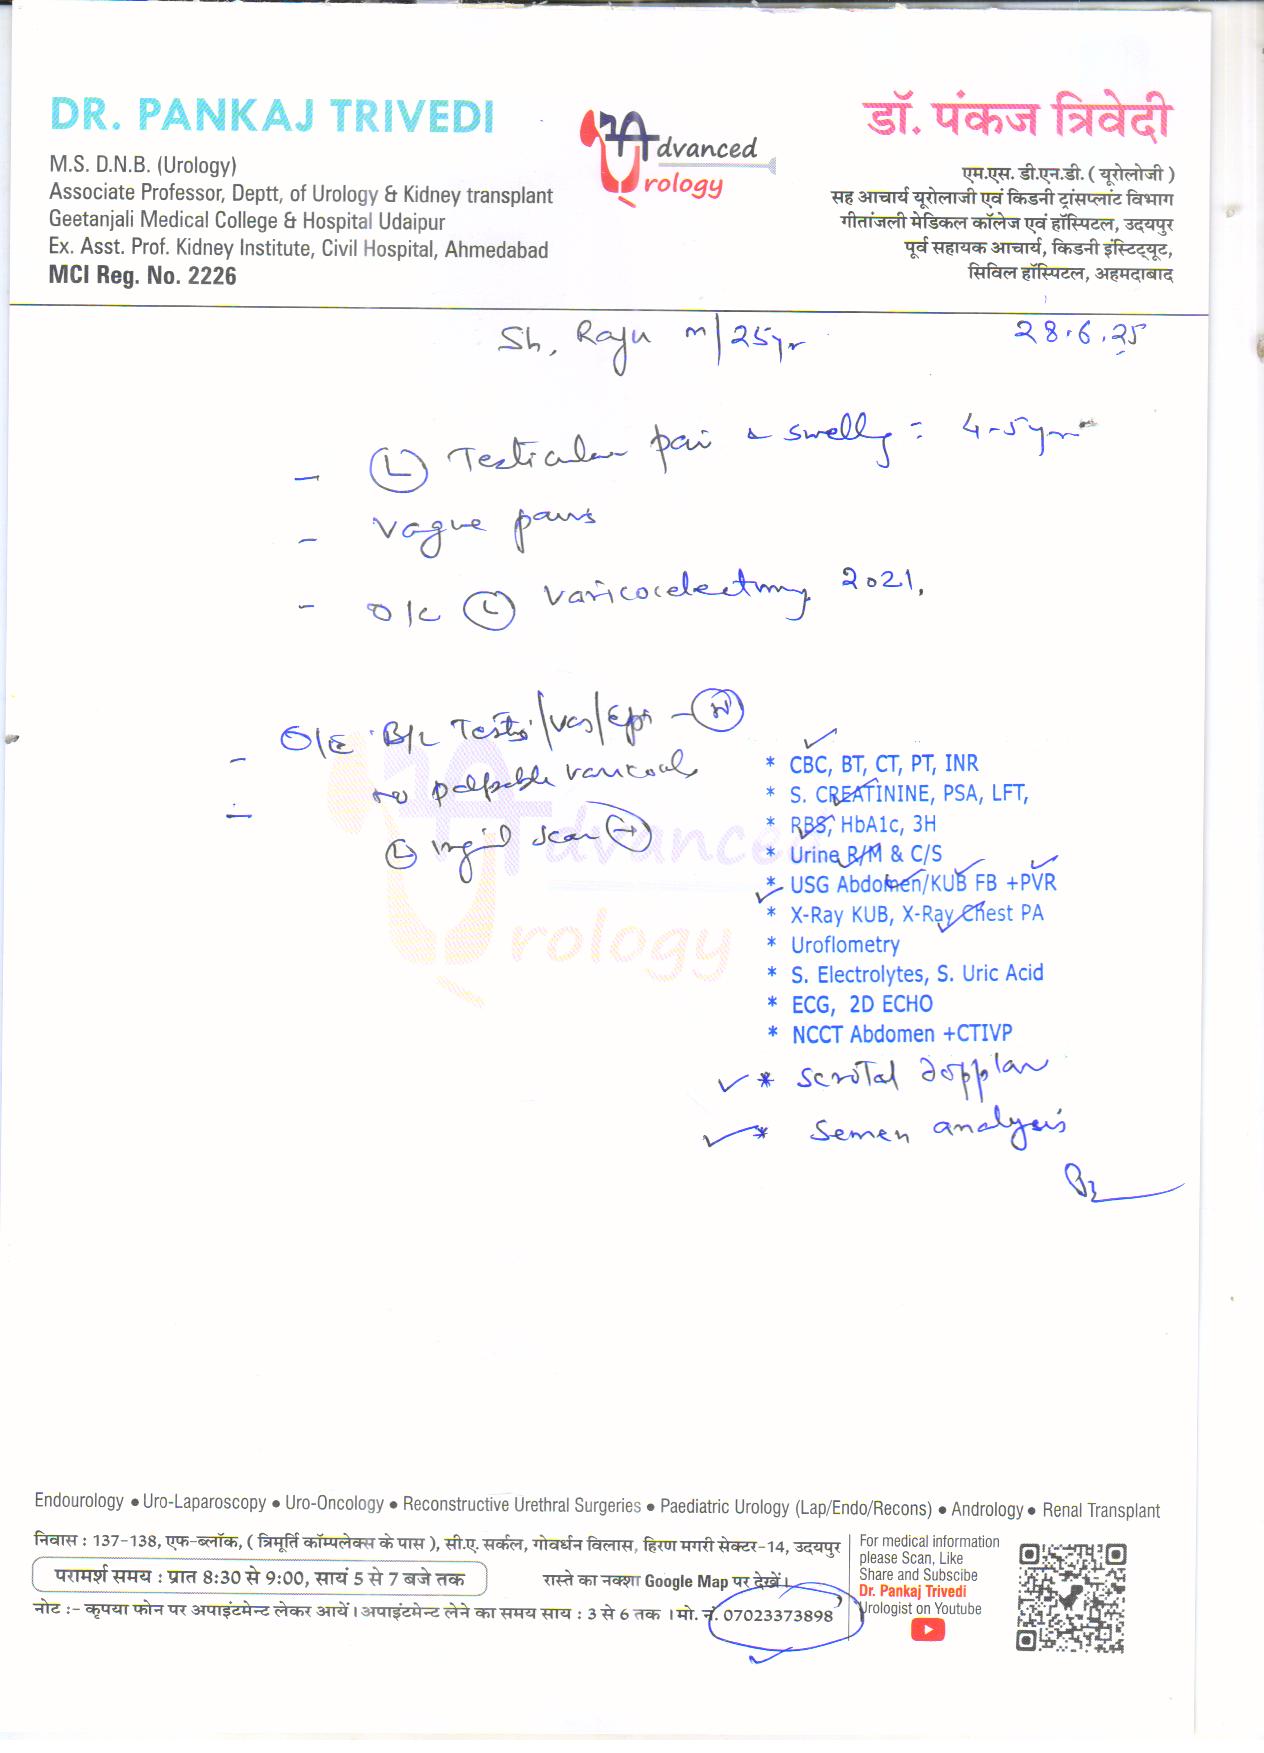 DR. PANKAJ TRIVEDI
M.S. D.N.B. (Urology)
Associate Professor, Deptt, of Urology & Kidney transplant
Geetanjali Medical College & Hospital Udaipur
Ex. Asst. Prof. Kidney Institute, Civil Hospital, Ahmedabad
MCI Reg. No. 2226
Advanced
Urology
डॉ. पंकज त्रिवेदी
एम.एस. डी.एन.डी. ( यूरोलोजी )
सह आचार्य यूरोलाजी एवं किडनी ट्रांसप्लांट विभाग
गीतांजली मेडिकल कॉलेज एवं हॉस्पिटल, उदयपुर
पूर्व सहायक आचार्य, किडनी इंस्टिट्यूट,
सिविल हॉस्पिटल, अहमदाबाद
Sh. Raju m/25yr 28.6.25
- (L) Testicular pain & swelling = 4-5yr
- vague pains
- O/C (L) varicocelectomy 2021,
- O/E B/L Testis/vas/Epi - (N)
- no palpable varicocele
(L) ingil scar (+)
Advanced
Urology
* CBC, BT, CT, PT, INR
* S. CREATININE, PSA, LFT,
* RBS, HbA1c, 3H
* Urine R/M & C/S
* USG Abdomen/KUB FB +PVR
* X-Ray KUB, X-Ray Chest PA
* Uroflometry
* S. Electrolytes, S. Uric Acid
* ECG, 2D ECHO
* NCCT Abdomen +CTIVP
* scrotal dopplar
* semen analysis
Endourology • Uro-Laparoscopy • Uro-Oncology • Reconstructive Urethral Surgeries • Paediatric Urology (Lap/Endo/Recons) • Andrology • Renal Transplant
निवास : 137-138, एफ-ब्लॉक, ( त्रिमूर्ति कॉम्पलेक्स के पास ), सी.ए. सर्कल, गोवर्धन विलास, हिरण मगरी सेक्टर-14, उदयपुर
परामर्श समय : प्रात 8:30 से 9:00, सायं 5 से 7 बजे तक
रास्ते का नक्शा Google Map पर देखें।
नोट :- कृपया फोन पर अपाइंटमेन्ट लेकर आयें। अपाइंटमेन्ट लेने का समय साय : 3 से 6 तक । मो. नं. 07023373898
For medical information
please Scan, Like
Share and Subscibe
Dr. Pankaj Trivedi
Urologist on Youtube